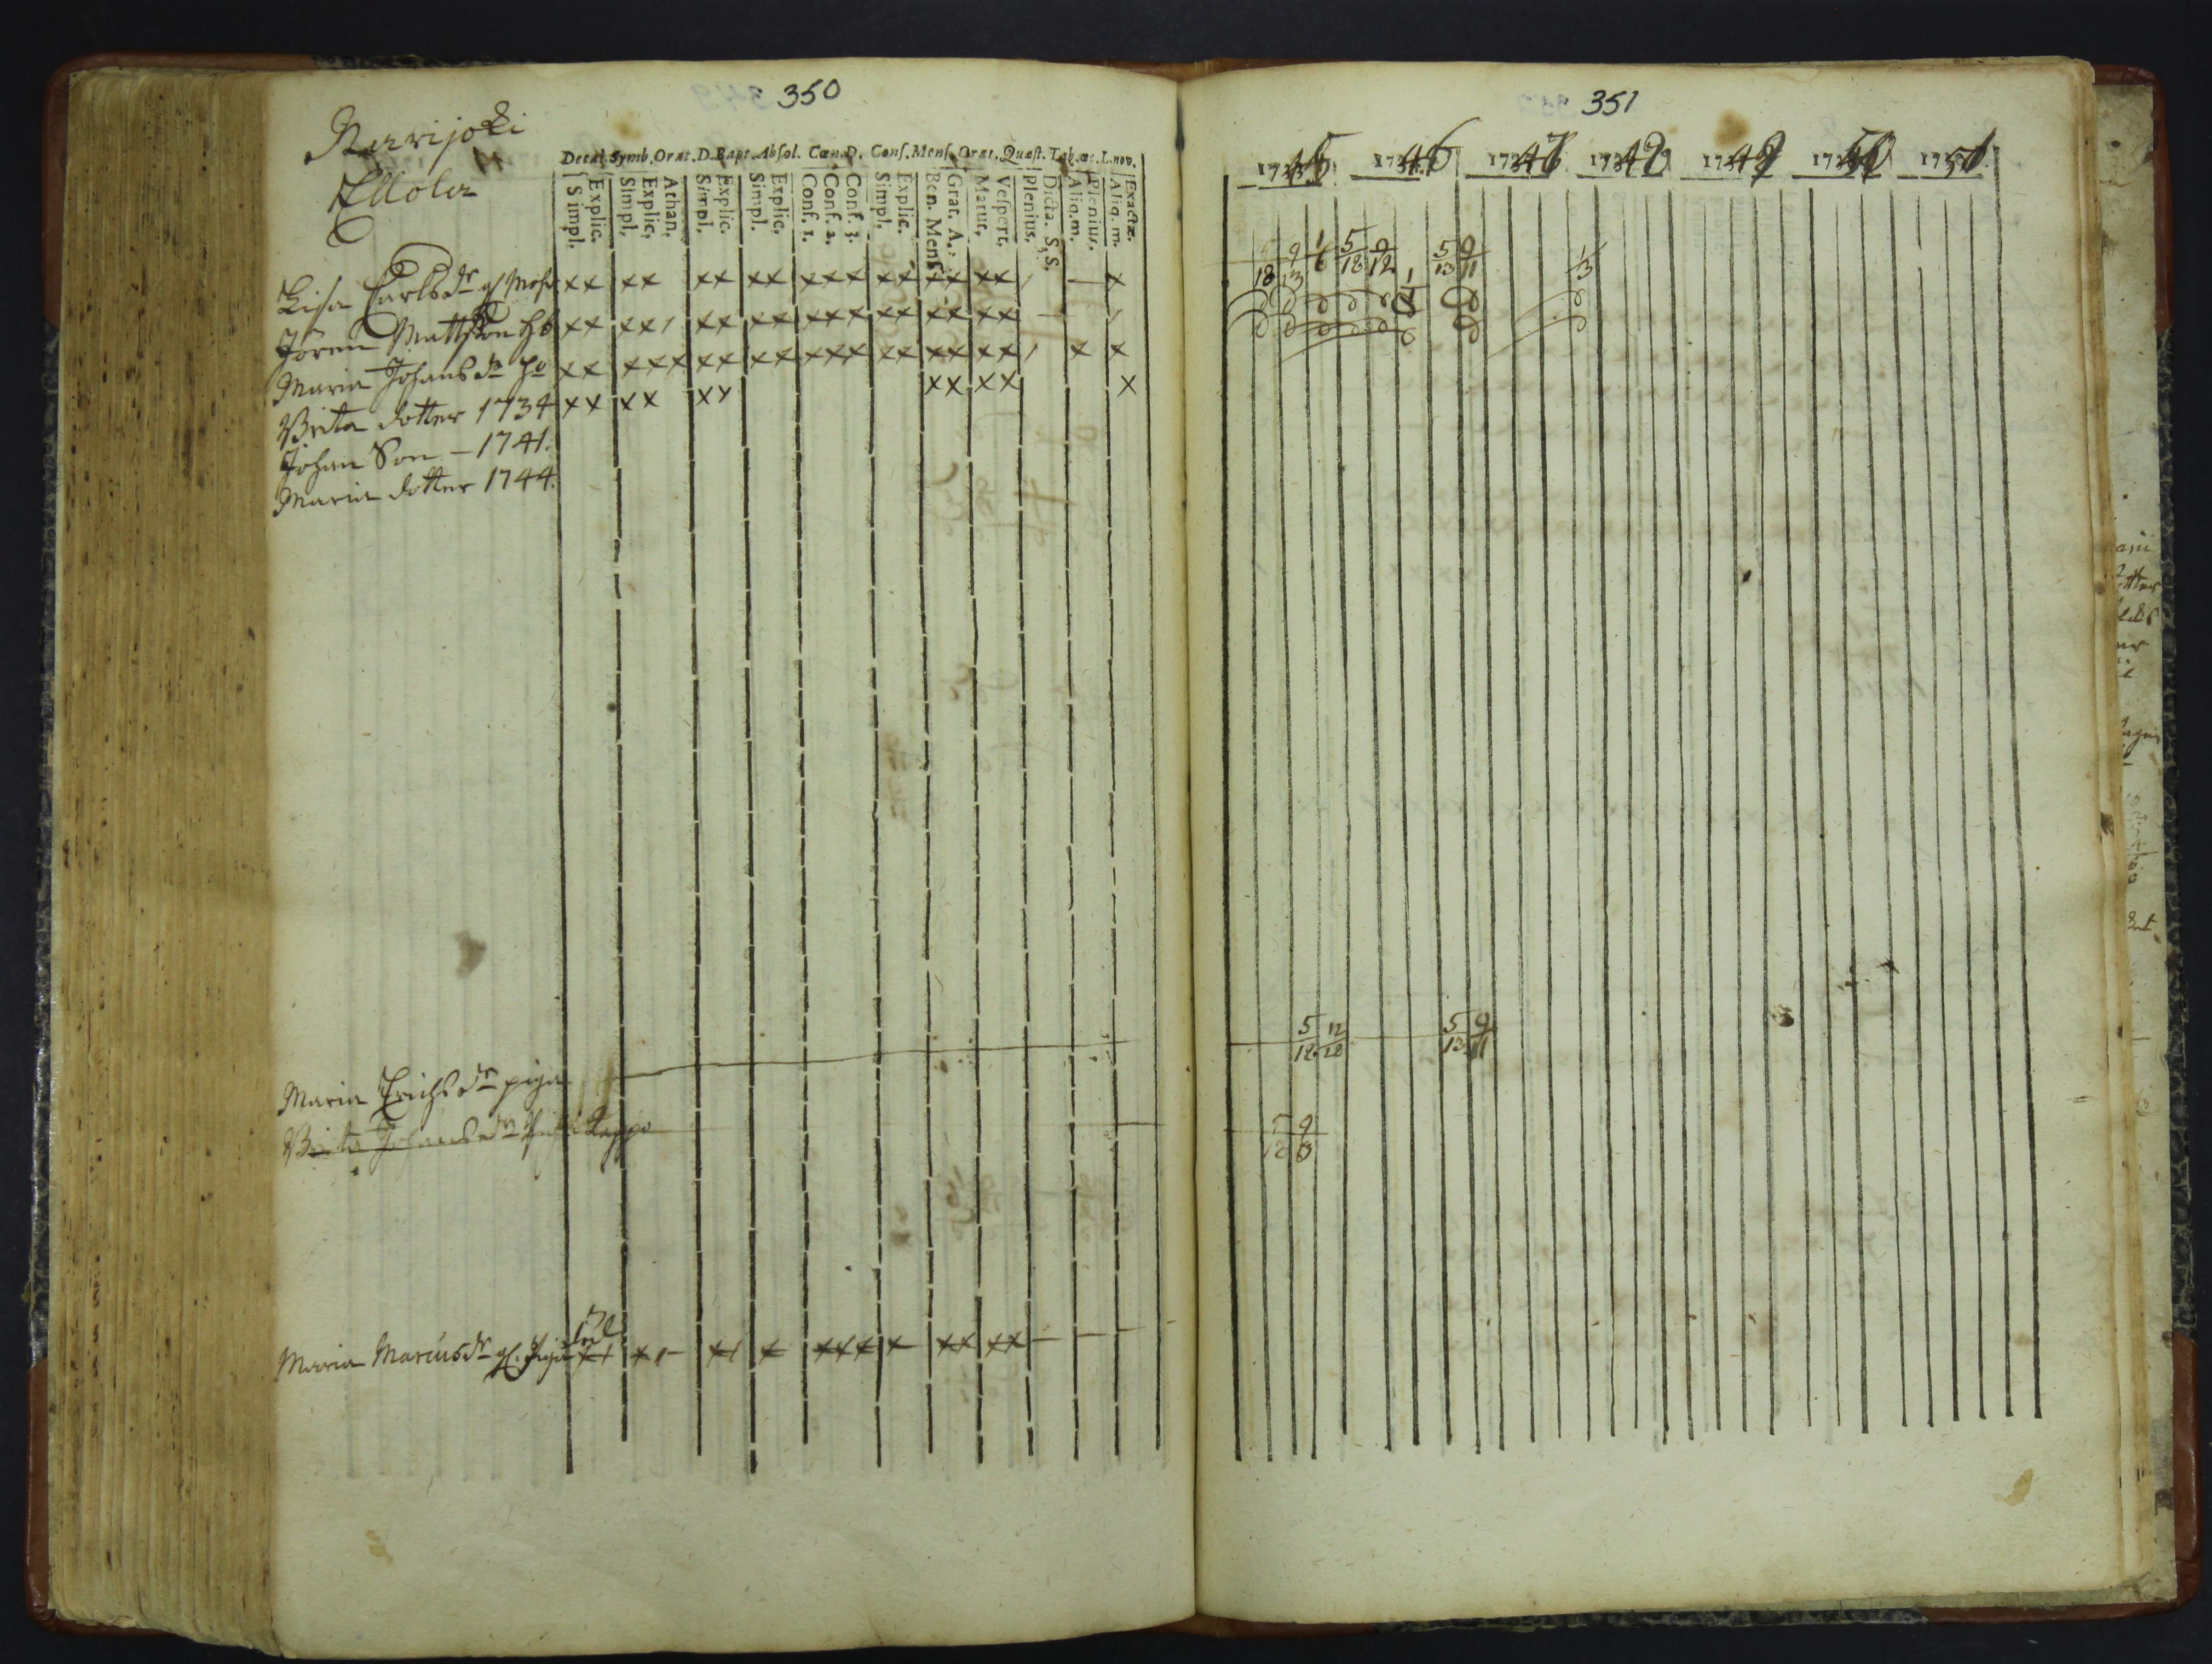 350
Narvijoki
Ellola
Decal. Symb. Orat. D. Bapt. Absol. Cœn. D. Conf. Mens. Orat. Quæst. Tab. œc. L. nov.
Simpl. Explic. Simpl. Explic. Athan. Simpl. Explic. Simpl. Explic. Conf. 1. Conf. 2. Conf. 3. Simpl. Explic. Ben. Mens. Grat. A. Matut. Vespert. Plenius. Dicta. S. S. Aliq. m. Plenius. Aliq. m. Exactæ.
Lisa Carlsdr gl Mor xx xx xx xx xxx xx xx xx / — x
Jören Mattson hb xx xx/ xx xx xxx xx xx xx /
Maria Johansdr ho xx xxx xx xx xxx xx xx xx / x x
Brita dotter 1734 xx xx xx xx xx x
Johan Son – 1741.
Maria dotter 1744.
Maria Erichsdr piga
Brita Johansdr Lappo
Maria Marcusdr gl. piga
351
1745 1746 1747 1748 1749 1750 1751
5/18 9/13 1/6 5/18 9/12 5/13 9/11 1/3
5/18 12/28 5/13 9/11
5/12 9/8